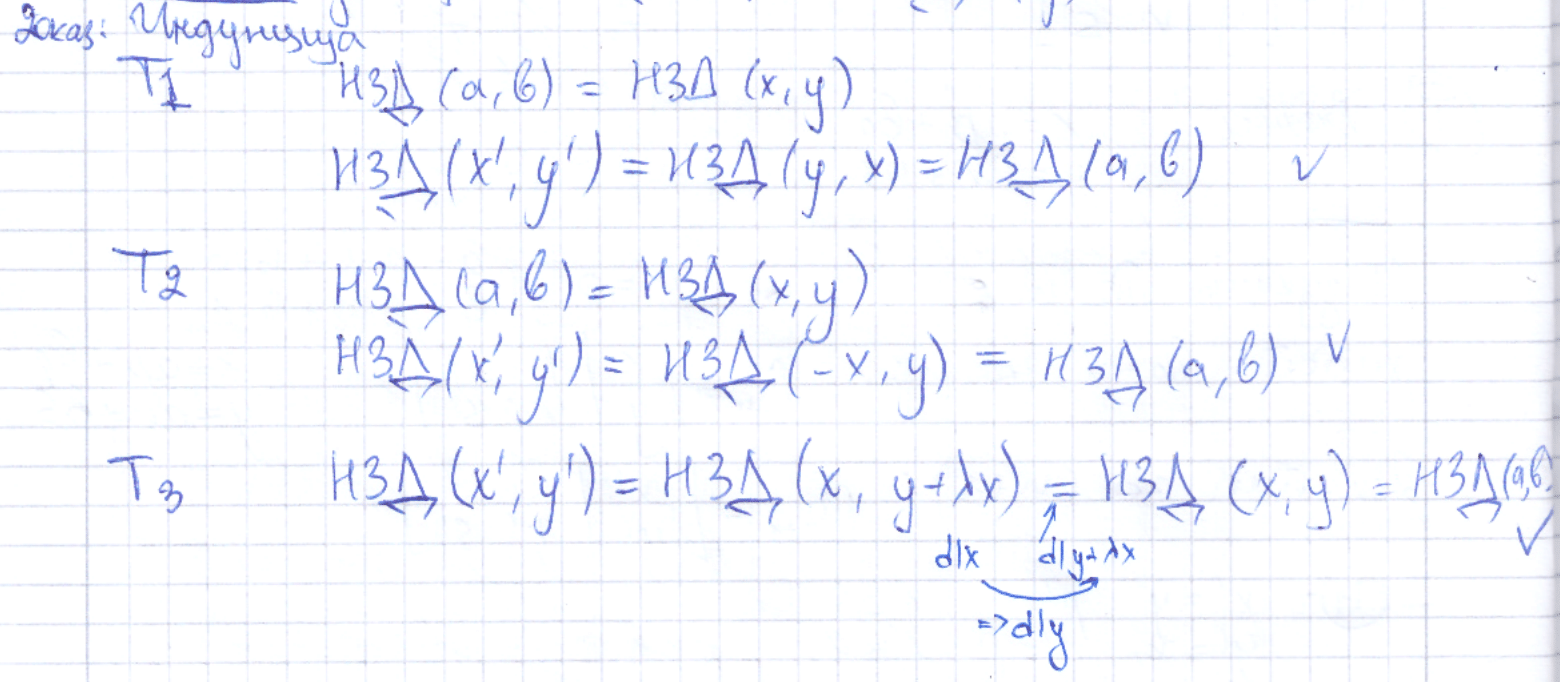 Доказ: Индукция
T1 НЗД (a, b) = НЗД (x, y)
НЗД (x', y') = НЗД (y, x) = НЗД (a, b) ✓
T2 НЗД (a, b) = НЗД (x, y)
НЗД (x', y') = НЗД (-x, y) = НЗД (a, b) ✓
T3 НЗД (x', y') = НЗД (x, y+λx) = НЗД (x, y) = НЗД (a, b) ✓
d|x d|y+λx
=> d|y